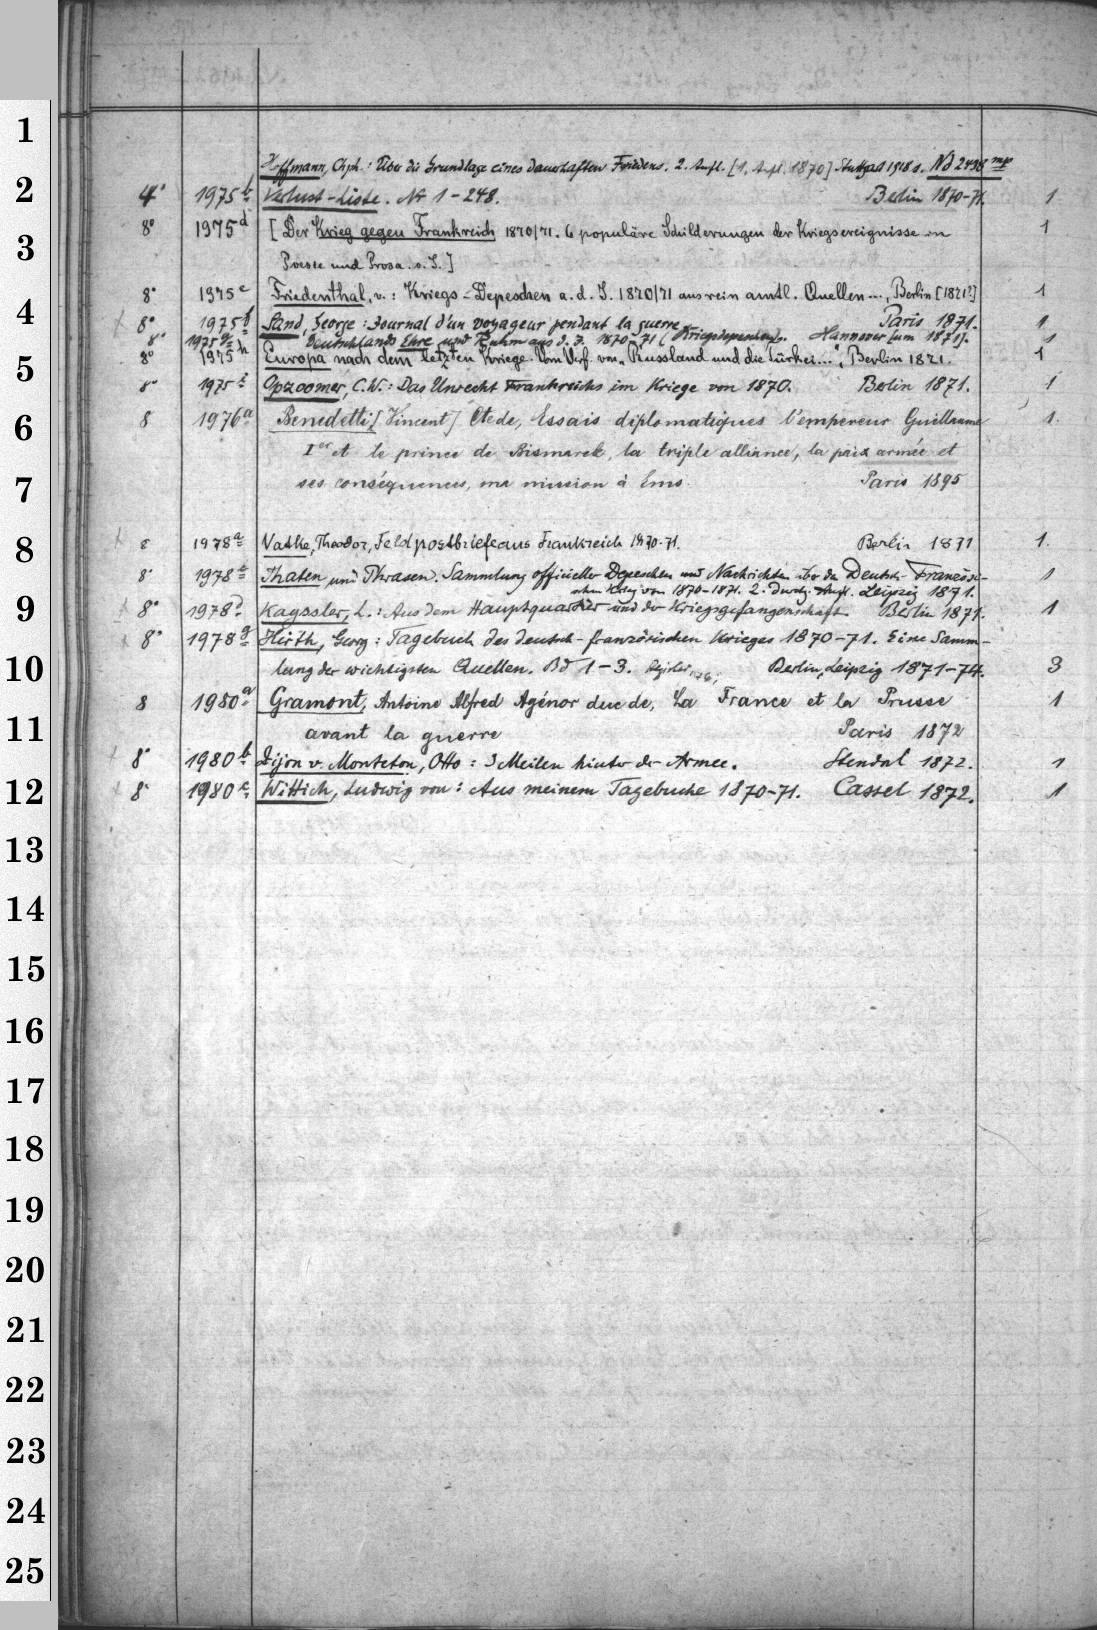 Hoffmann, Chph.: Über die Grundlage eines dauerhaften Friedens. 2. Aufl. [1. Aufl. 1870] Stuttgart 1918 s. Nd 2498 mp
4° 1975 b Verlust-Liste. Nr 1-248. Berlin 1870-71. 1
8° 1975 d [Der Krieg gegen Frankreich 1870/71. 6 populäre Schilderungen der Kriegsereignisse in 1
Poesie und Prosa. o. J.]
8° 1975 e Friedenthal, v.: Kriegs-Depeschen a. d. J. 1870/71 aus rein amtl. Quellen..., Berlin [1871?] 1
8° 1975 f Sand, George: Journal d'un voyageur pendant la guerre Paris 1871. 1
8° 1975 g Deutschlands Ehre und Ruhm aus d. J. 1870-71 (Kriegsdepeschen). Hannover (um 1871). 1
8° 1975 h Europa nach dem letzten Kriege. Vom Verf. von „Russland und die Türkei...", Berlin 1871. 1
8° 1975 i Opzoomer, C. W.: Das Unrecht Frankreichs im Kriege von 1870. Berlin 1871. 1
8 1976 a Benedetti [Vincent] Cte de, Essais diplomatiques l'empereur Guillaume 1.
Ier et le prince de Bismarck, la triple alliance, la paix armée et
ses conséquences, ma mission à Ems Paris 1895
8 1978 a Vatke, Theodor, Feldpostbriefe aus Frankreich 1870-71. Berlin 1871 1.
8° 1978 c Thaten und Phrasen. Sammlung officieller Depeschen und Nachrichten über den Deutsch-Französi- 1
schen Krieg von 1870-1871. 2. durchg. Aufl. Leipzig 1871.
8° 1978 d Kayssler, L.: Aus dem Hauptquartier und der Kriegsgefangenschaft. Berlin 1871. 1
8° 1978 g Hirth, Georg: Tagebuch des deutsch-französischen Krieges 1870-71. Eine Samm-
lung der wichtigsten Quellen. Bd 1-3. Berlin, Leipzig 1871-74. 3
8 1980 a Gramont, Antoine Alfred Agénor duc de, La France et la Prusse 1
avant la guerre Paris 1872
8° 1980 b Dijon v. Monteton, Otto: 3 Meilen hinter der Armee. Stendal 1872. 1
8° 1980 c Wittich, Ludwig von: Aus meinem Tagebuche 1870-71. Cassel 1872. 1
1
2
3
4
5
6
7
8
9
10
11
12
13
14
15
16
17
18
19
20
21
22
23
24
25